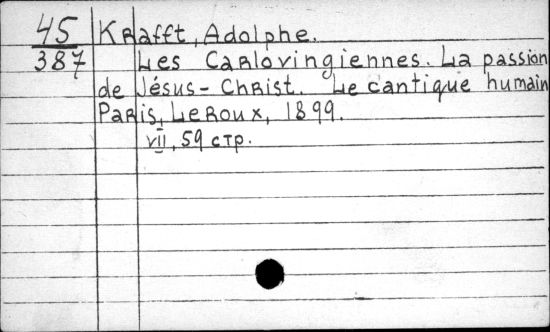 45
387
Krafft, Adolphe.
Les Carlovingiennes. La passion
de Jésus-Christ. Le cantique humain
Paris, Leroux, 1899.
VII, 59 стр.